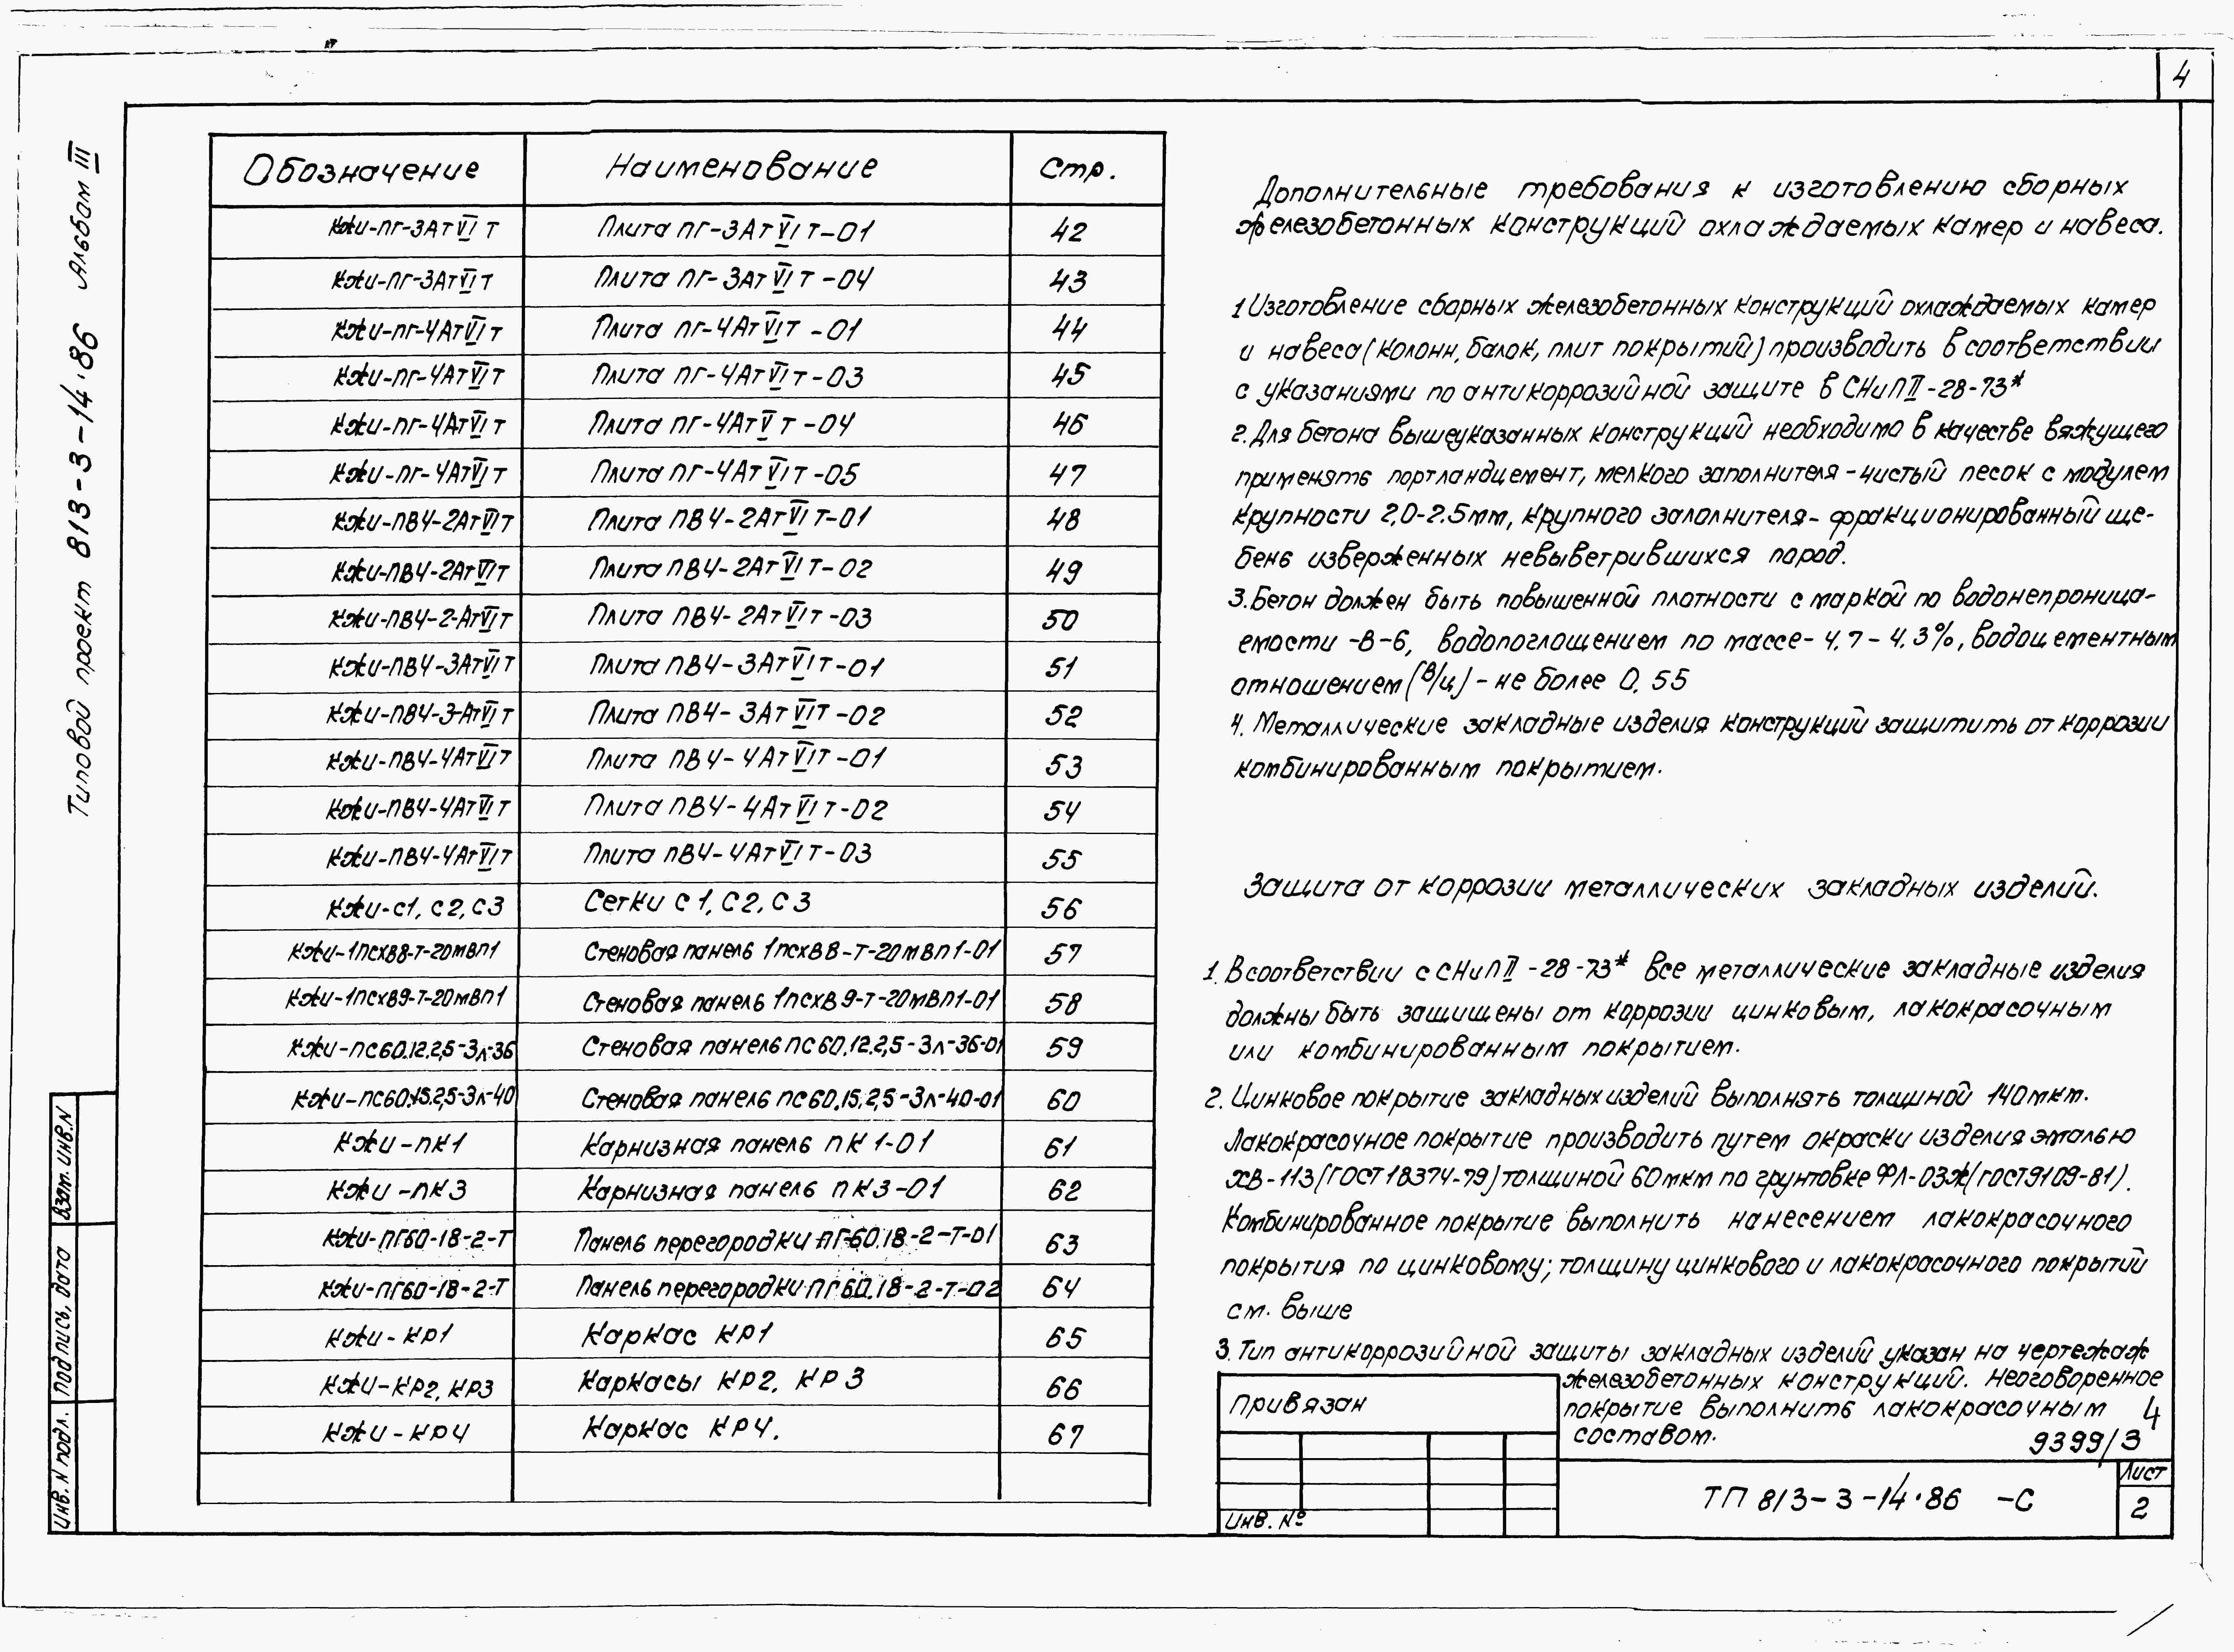 4
Типовой проект 813-3-14.86 Альбом III
Обозначение Наименование Стр.
КЖИ-ПГ-3АтVIт Плита ПГ-3АтVIт-01 42
КЖИ-ПГ-3АтVIт Плита ПГ-3АтVIт-04 43
КЖИ-ПГ-4АтVIт Плита ПГ-4АтVIт-01 44
КЖИ-ПГ-4АтVIт Плита ПГ-4АтVIт-03 45
КЖИ-ПГ-4АтVIт Плита ПГ-4АтVт-04 46
КЖИ-ПГ-4АтVIт Плита ПГ-4АтVIт-05 47
КЖИ-ПВ4-2АтVIт Плита ПВ4-2АтVIт-01 48
КЖИ-ПВ4-2АтVIт Плита ПВ4-2АтVIт-02 49
КЖИ-ПВ4-2-АтVIт Плита ПВ4-2АтVIт-03 50
КЖИ-ПВ4-3АтVIт Плита ПВ4-3АтVIт-01 51
КЖИ-ПВ4-3-АтVIт Плита ПВ4-3АтVIт-02 52
КЖИ-ПВ4-4АтVIт Плита ПВ4-4АтVIт-01 53
КЖИ-ПВ4-4АтVIт Плита ПВ4-4АтVIт-02 54
КЖИ-ПВ4-4АтVIт Плита ПВ4-4АтVIт-03 55
КЖИ-С1, С2, С3 Сетки С1, С2, С3 56
КЖИ-1ПСХВ8-Т-20МВП1 Стеновая панель 1ПСХВ8-Т-20МВП1-01 57
КЖИ-1ПСХВ9-Т-20МВП1 Стеновая панель 1ПСХВ9-Т-20МВП1-01 58
КЖИ-ПС60.12.2,5-3Л-36 Стеновая панель ПС60.12.2,5-3Л-36-01 59
КЖИ-ПС60.15.2,5-3Л-40 Стеновая панель ПС60.15.2,5-3Л-40-01 60
КЖИ-ПК1 Карнизная панель ПК1-01 61
КЖИ-ПК3 Карнизная панель ПК3-01 62
КЖИ-ПГ60-18-2-Т Панель перегородки ПГ-60.18-2-Т-01 63
КЖИ-ПГ60-18-2-Т Панель перегородки ПГ60.18-2-Т-02 64
КЖИ-КР1 Каркас КР1 65
КЖИ-КР2, КР3 Каркасы КР2, КР3 66
КЖИ-КР4 Каркас КР4. 67
Дополнительные требования к изготовлению сборных
железобетонных конструкций охлаждаемых камер и навеса.
1 Изготовление сборных железобетонных конструкций охлаждаемых камер
и навеса (колонн, балок, плит покрытий) производить в соответствии
с указаниями по антикоррозийной защите в СНиП II-28-73*
2. Для бетона вышеуказанных конструкций необходимо в качестве вяжущего
применять портландцемент, мелкого заполнителя - чистый песок с модулем
крупности 2,0-2.5мм, крупного заполнителя - фракционированный ще-
бень изверженных невыветрившихся пород.
3. Бетон должен быть повышенной плотности с маркой по водонепроница-
емости -В-6, водопоглощением по массе - 4,7-4,3%, водоцементным
отношением (В/ц) - не более 0,55
4. Металлические закладные изделия конструкций защитить от коррозии
комбинированным покрытием.
Защита от коррозии металлических закладных изделий.
1. В соответствии с СНиП II-28-73* все металлические закладные изделия
должны быть защищены от коррозии цинковым, лакокрасочным
или комбинированным покрытием.
2. Цинковое покрытие закладных изделий выполнять толщиной 140мкм.
Лакокрасочное покрытие производить путем окраски изделия эмалью
ХВ-113 (ГОСТ 18374-79) толщиной 60мкм по грунтовке ФЛ-03Ж (ГОСТ 9109-81).
Комбинированное покрытие выполнить нанесением лакокрасочного
покрытия по цинковому; толщину цинкового и лакокрасочного покрытий
см. выше
3. Тип антикоррозийной защиты закладных изделий указан на чертежаж
железобетонных конструкций. Неоговоренное
покрытие выполнить лакокрасочным
составом.
4
9399/3
Привязан
Инв. №
ТП 813-3-14.86 -С
Лист
2
Взам. инв. N
Подпись, дата
Инв. N подл.